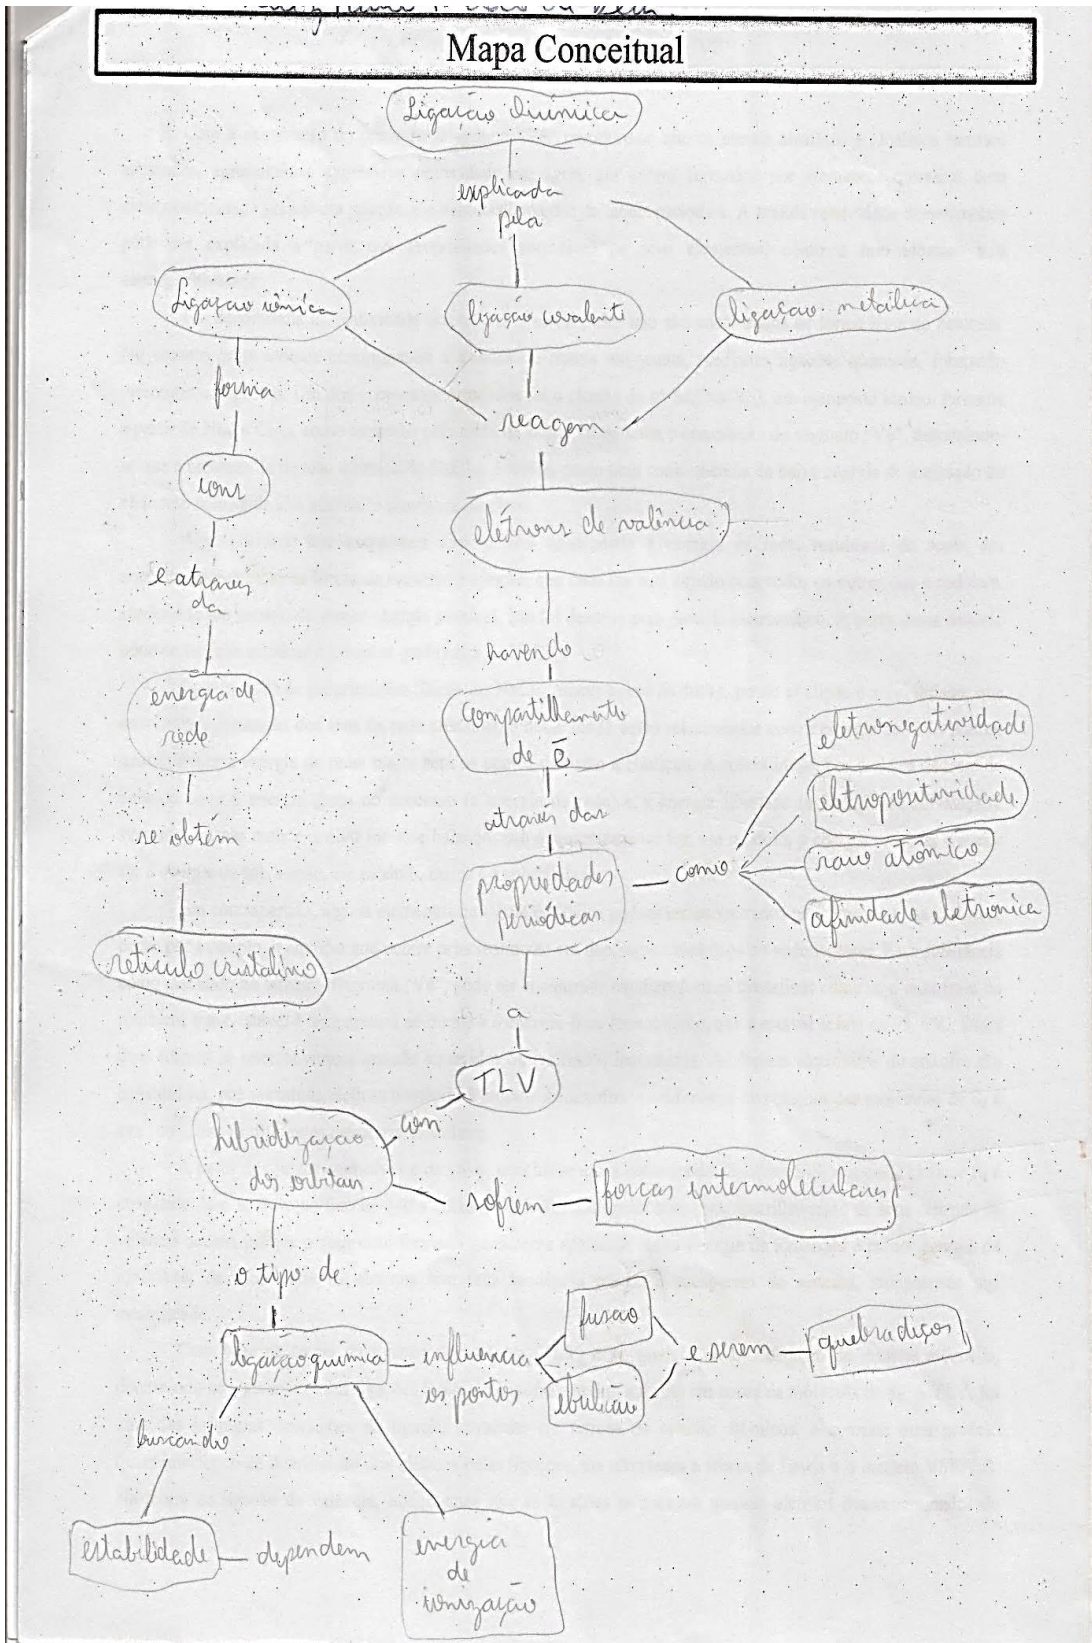 Mapa Conceitual
Ligação Química
explicada
pela
Ligação iônica
ligação covalente
ligação metálica
forma
reagem
íons
elétrons de valência
e através
da
havendo
energia de
rede
Compartilhamento
de ē
eletronegatividade
eletropositividade
raio atômico
afinidade eletrônica
se obtém
através das
propriedades
periódicas
como
retículo cristalino
a
TLV
com
hibridização
dos orbitais
sofrem
forças intermoleculares
o tipo de
ligação química
influencia
os pontos
fusão
ebulição
e serem
quebradiços
buscando
estabilidade
dependem
energia
de
ionização